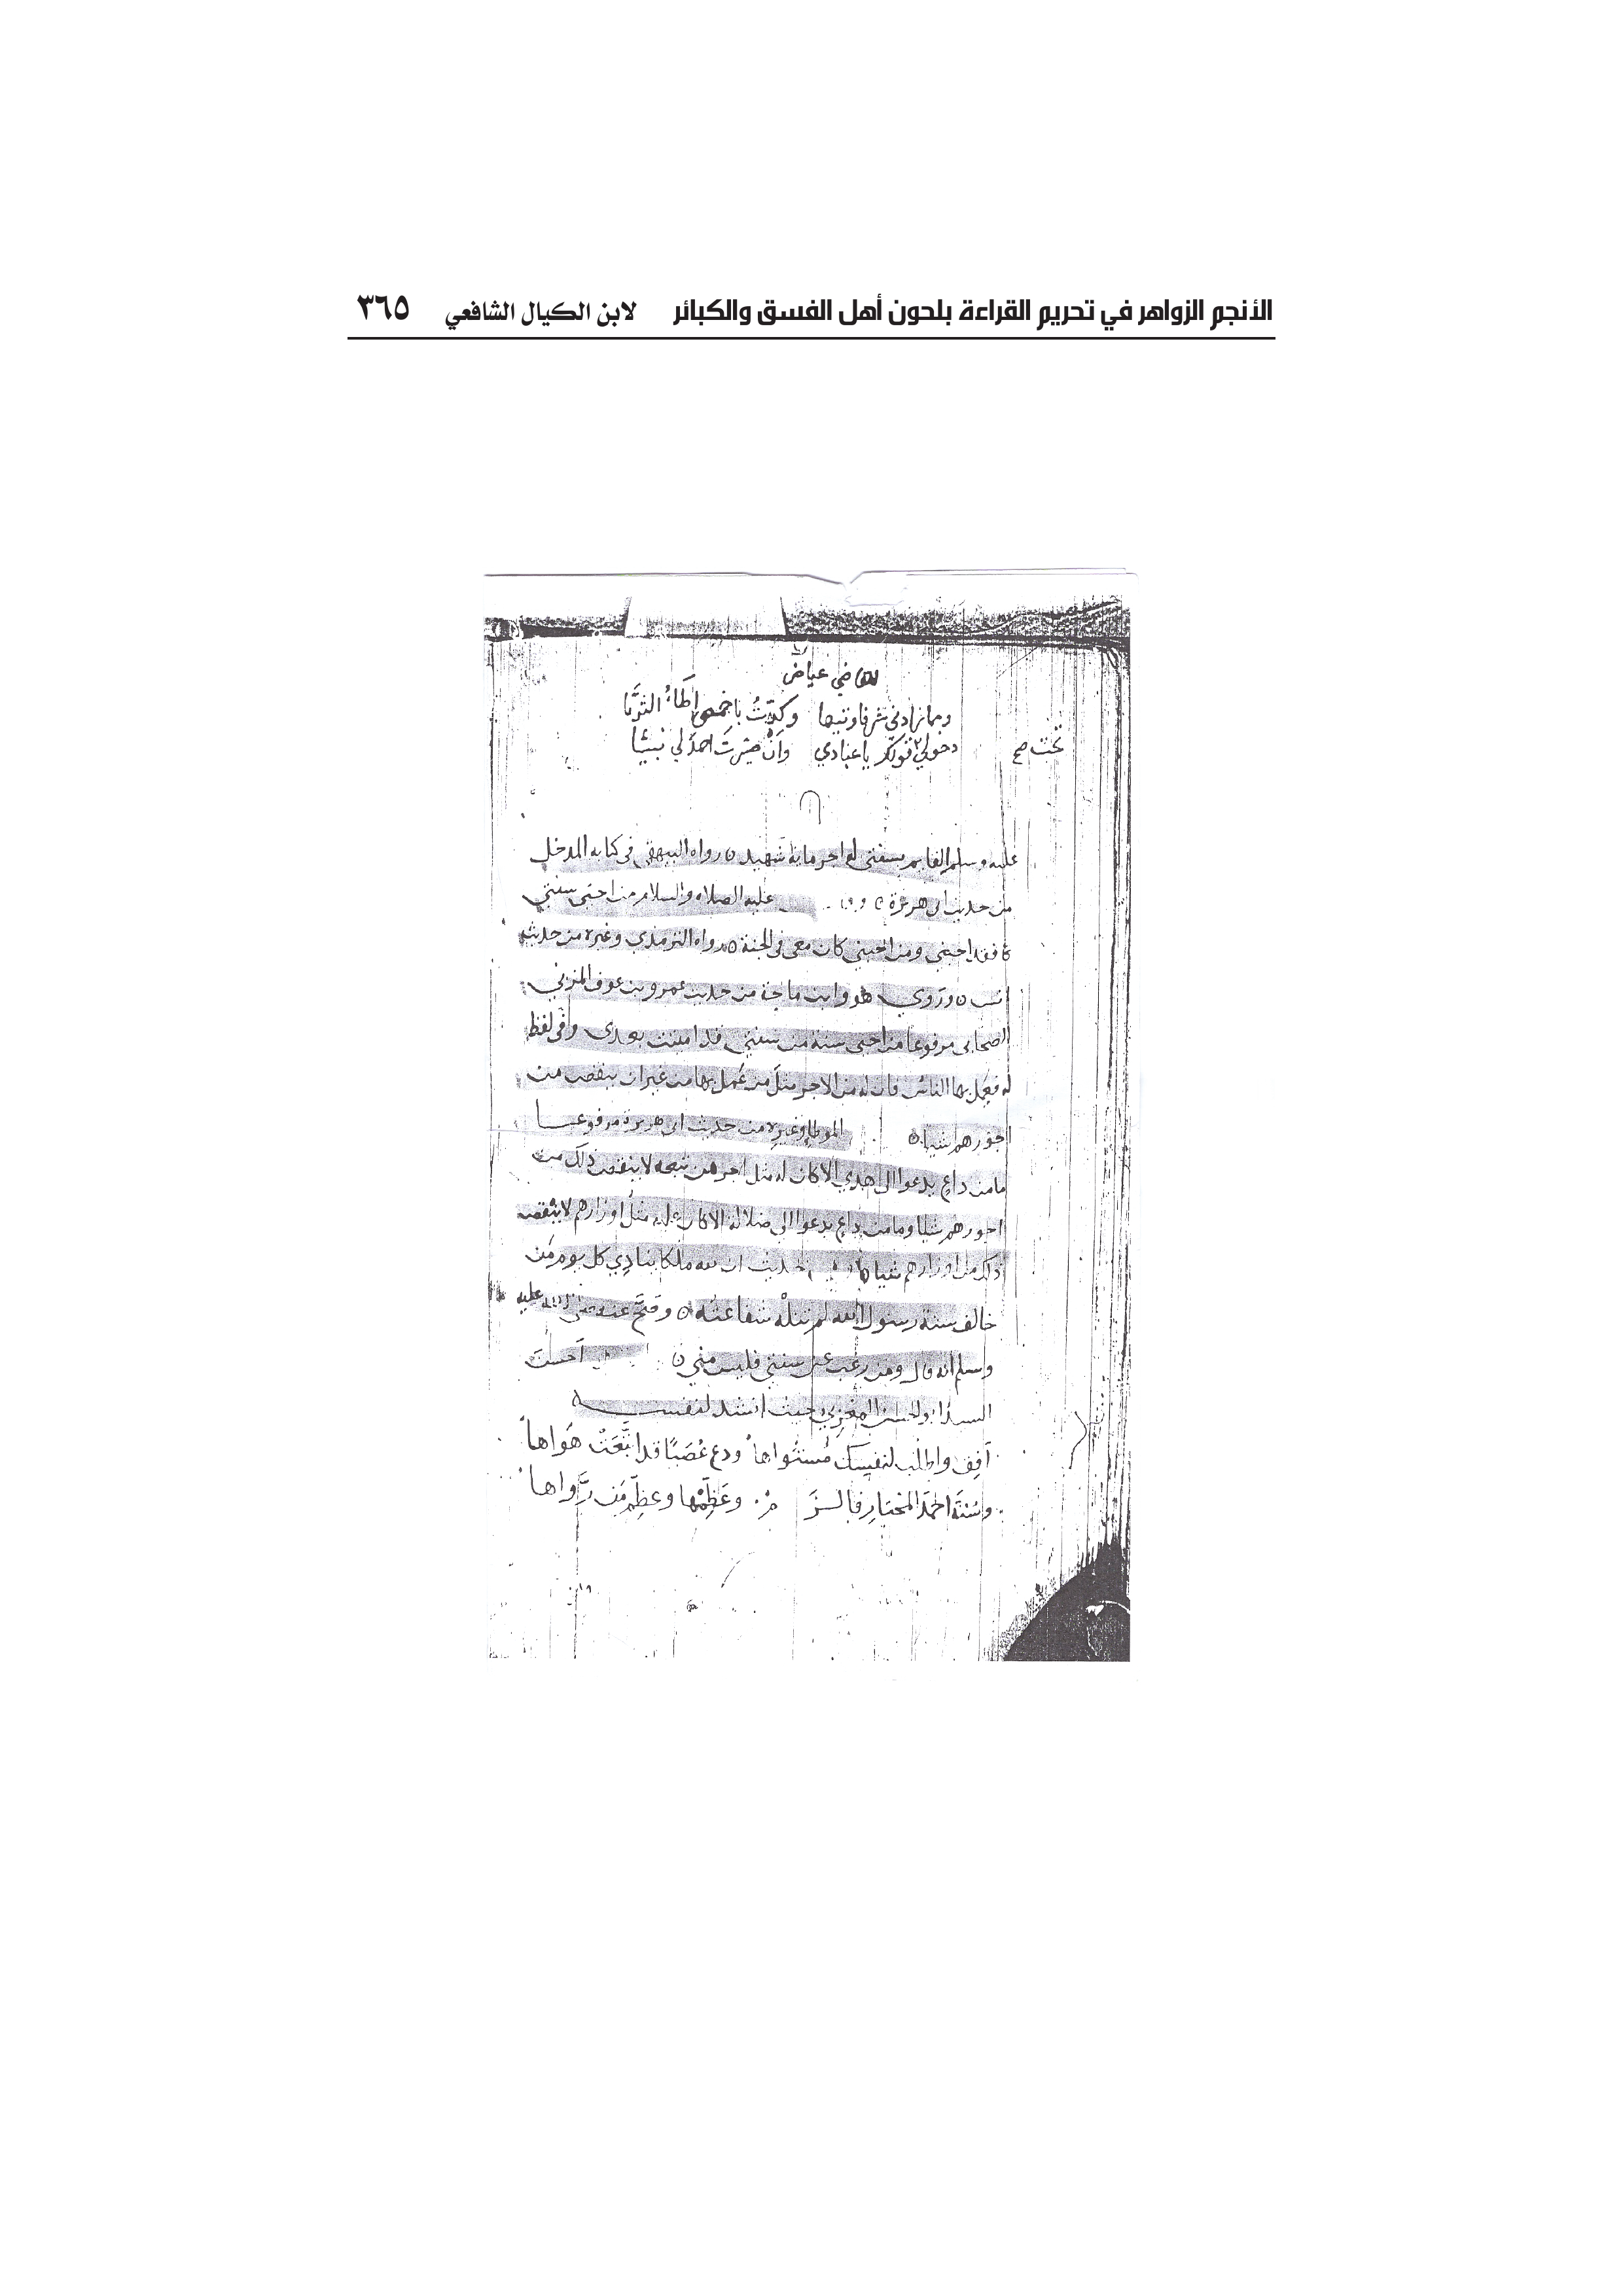 الأنجم الزواهر في تحريم القراءة بلحون أهل الفسق والكبائر لابن الكيال الشافعي ٣٦٥
للقاضي عياض
ومما زادني شرفا وتيها وكدتُ باخمصي اطأُ الثريَّا
دخولي قولك يا عبادي وأنْ صيرتَ احمدَ لي نبيًّا
تحت صح
عليه وسلم القايم بسنتي له اجر ماية شهيد ٥ رواه البيهقي في كتابه المدخل
من حديث ابي هريرة ٥ عليه الصلاه والسلام من احيى سنتي
فقد احبني ومن احبني كان معي في الجنة ٥ رواه الترمذي وغيره من حديث
انس ٥ ورَوي هو وابن ماجة من حديث عمرو بن عوف المزني
الصحابي مرفوعا من احيى سنة من سنتي قد اميتت بعدى وفي لفظ
له فعِمل بها الناسُ فان له من الاجر مثلَ من عَمل بها من غير ان ينقص من
اجورهم شيا ٥ الموطا وغيره من حديث ابي هريرة مرفوعا
ما من داعٍ يدعوا الى هدي الا كان له مثل اجر من تبعه لا ينقص ذلك من
اجورهم شيا وما من داعٍ يدعوا الى ضلاله الا كان عليه مثل اوزارهم لا ينقص
ذلك من اوزارهم شيا الحديث ان لله ملكا ينادِي كل يوم من
خالف سنة رسول الله لم تنلْه شفاعته ٥ وصَحَّ عنه صلى الله عليه
وسلم انه قال ومن رغب عن سنتي فليس مني ٥ أحسنَ
السيد ابو الحسن المغربي حيث انشد لنفسه
أَفِق واطلب لنفسِك مُستَواها ودع عُصَبًا قد اتَّبَعَتْ هَواها
وسُنةَ احمَدَ المختارِ فالزَمْ وعَظِّمْها وعظِّم مَن رَّواها